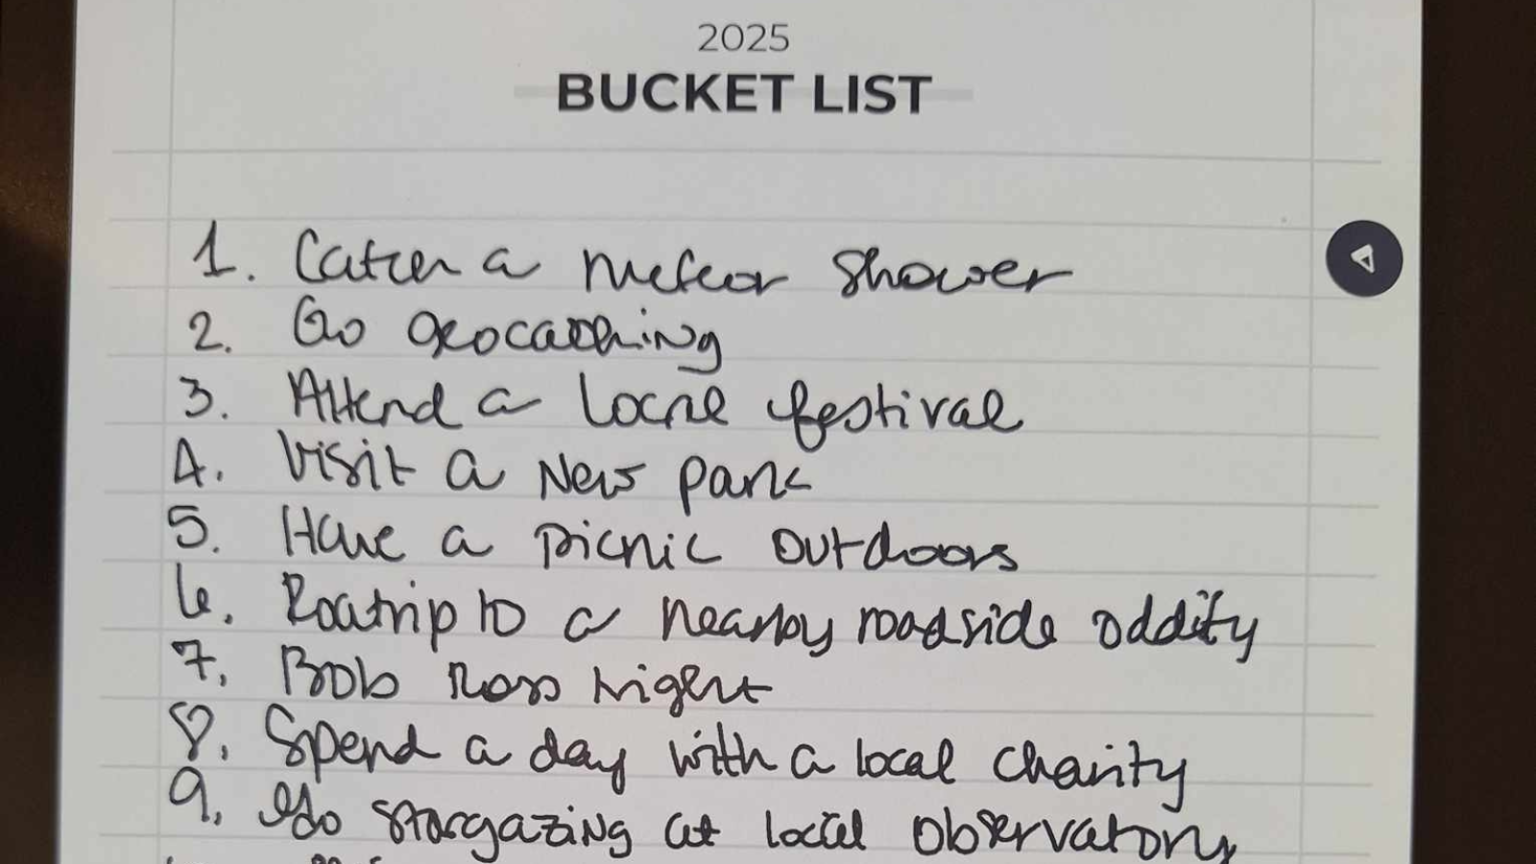 2025
BUCKET LIST
1. Catch a meteor shower
2. Go geocaching
3. Attend a local festival
4. Visit a new park
5. Have a picnic outdoors
6. Roatrip to a nearby roadside oddity
7. Bob Ross Night
8. Spend a day with a local charity
9. Go stargazing at local observatory